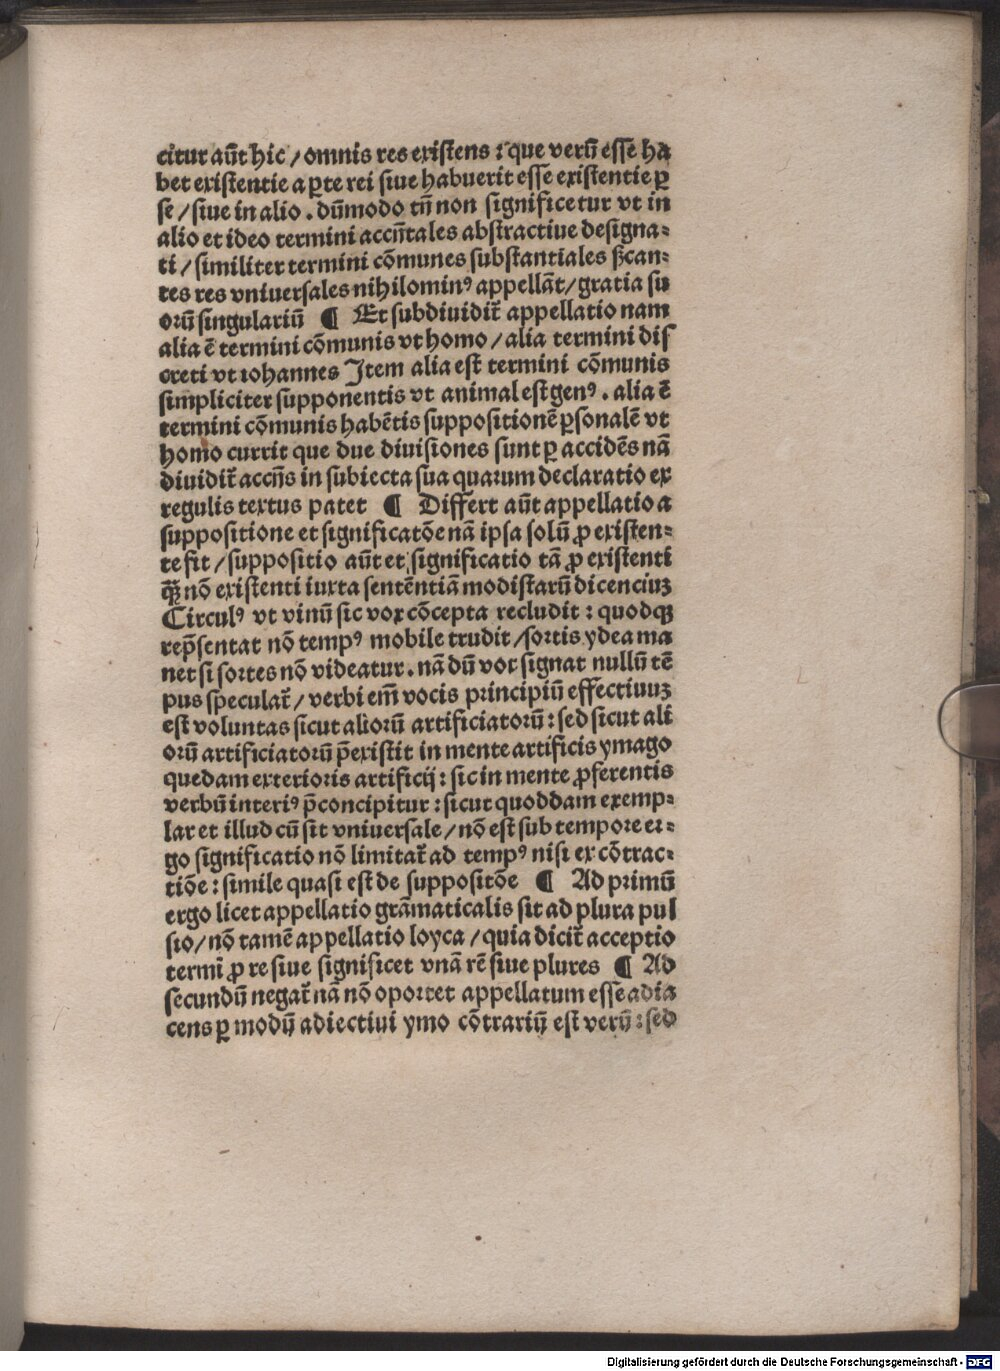 citur aūt hic / omnis res existens : que verū esse ha
bet existentie a ꝑte rei siue habuerit esse existentie ꝑ
se / siue in alio . dūmodo tn̄ non significetur vt in
alio et ideo termini accn̄tales abstractiue designa⸗
ti / similiter termini cōmunes substantiales ẜcan⸗
tes res vniuersales nihilominꝰ appellāt / gratia su
orū singulariū ¶ Et subdiuidit̄ appellatio nam
alia ē termini cōmunis vt homo / alia termini dis
creti vt iohannes Item alia est termini cōmunis
simpliciter supponentis vt animal est genꝰ . alia ē
termini cōmunis habētis suppositionē ꝑsonalē vt
homo currit que due diuisiones sunt ꝑ accidēs nā
diuidit̄ accn̄s in subiecta sua quarum declaratio ex
regulis textus patet ¶ Differt aūt appellatio a
suppositione et significatōe nā ipsa solū ꝓ existen⸗
te fit / suppositio aūt et significatio tā ꝓ existenti
ꝙ̄ꝫ nō existenti iuxta sentēntiā modistarū dicenciuꝫ
Circulꝰ vt vinū sic vox cōcepta recludit : quodqꝫ
rep̄sentat nō tempꝰ mobile trudit / sortis ydea ma
net si sortes nō videatur . nā dū vox signat nullū tē
pus speculat̄ / verbi em̄ vocis principiū effectiuuꝫ
est voluntas sicut aliorū artificiatorū : sed sicut ali
orū artificiatorū p̄existit in mente artificis ymago
quedam exterioris artificij : sic in mente ꝓferentis
verbū interiꝰ p̄concipitur : sicut quoddam exemp⸗
lar et illud cū sit vniuersale / nō est sub tempore er⸗
go significatio nō limitat̄ ad tempꝰ nisi ex cōtrac⸗
tiōe : simile quasi est de suppositōe ¶ Ad primū
ergo licet appellatio grāmaticalis sit ad plura pul
sio / nō tamē appellatio loyca / quia dicit̄ acceptio
termī ꝓ re siue significet vnā rē siue plures ¶ Ad
secundū negat̄ nā nō oportet appellatum esse adia
cens ꝑ modū adiectiui ymo cōtrariū est verū : sed
Digitalisierung gefördert durch die Deutsche Forschungsgemeinschaft - DFG